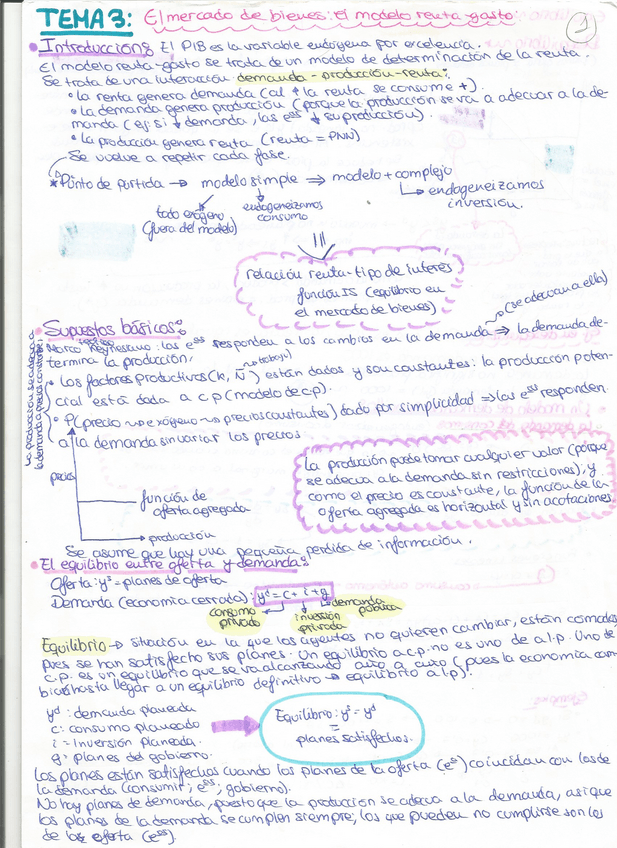 TEMA 3: El mercado de bienes: el modelo renta-gasto.
1
Introducción: El PIB es la variable endógena por excelencia.
El modelo renta-gasto se trata de un modelo de determinación de la renta.
Se trata de una interacción demanda-producción-renta:
• La renta genera demanda (al ↑ la renta se consume +).
• La demanda genera producción (porque la producción se va a adecuar a la de-
manda (ej: si ↓ demanda, las eªˢ ↓ su producción).
• La producción genera renta (renta = PNN)
Se vuelve a repetir cada fase.
* Punto de partida → modelo simple ⇒ modelo + complejo
todo exógeno (fuera del modelo)
endogeneizamos consumo
endogeneizamos inversión.
relación renta-tipo de interés
función IS (equilibrio en
el mercado de bienes)
Supuestos básicos:
(se adecuan a ella)
Marco Keynesiano: las eªˢ responden a los cambios en la demanda ⇒ la demanda de-
termina la producción,
trabajo
• Los factores productivos (K, N) están dados y son constantes: la producción poten-
cial está dada a c.p (modelo de c.p).
• P (precio → exógeno → precios constantes) dado por simplicidad ⇒ las eªˢ responden
a la demanda sin variar los precios
La producción se adecua a
la demanda a precios constantes
precios
función de
oferta agregada
producción
La producción puede tomar cualquier valor (porque
se adecua a la demanda sin restricciones), y
como el precio es constante, la función de la
oferta agregada es horizontal y sin acotaciones
Se asume que hay una pequeña perdida de información.
El equilibrio entre oferta y demanda:
Oferta: yˢ = planes de oferta
Demanda (economía cerrada): yᵈ = c + i + g
consumo privado
inversión privada
demanda pública
Equilibrio → situación en la que los agentes no quieren cambiar, están cómodos
pues se han satisfecho sus planes. Un equilibrio a c.p. no es uno de a l.p. Uno de
c.p. es un equilibrio que se va alcanzando año a año (pues la economía cam-
bia) hasta llegar a un equilibrio definitivo → equilibrio a l.p).
yᵈ: demanda planeada
c: consumo planeado
i = Inversión Planeada.
g: planes del gobierno.
Equilibrio: yˢ = yᵈ
=
planes satisfechos.
Los planes están satisfechos cuando los planes de la oferta (eªˢ) coincidan con los de
la demanda (consumir, eªˢ, gobierno).
No hay planes de demanda, puesto que la producción se adecua a la demanda, asi que
los planes de la demanda se cumplen siempre, los que pueden no cumplirse son los
de la oferta (eªˢ).